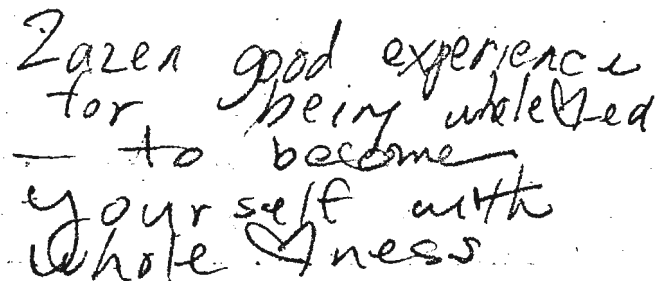 Zazen good experience
for being whole♡ed
— to become
yourself with
whole ♡ness